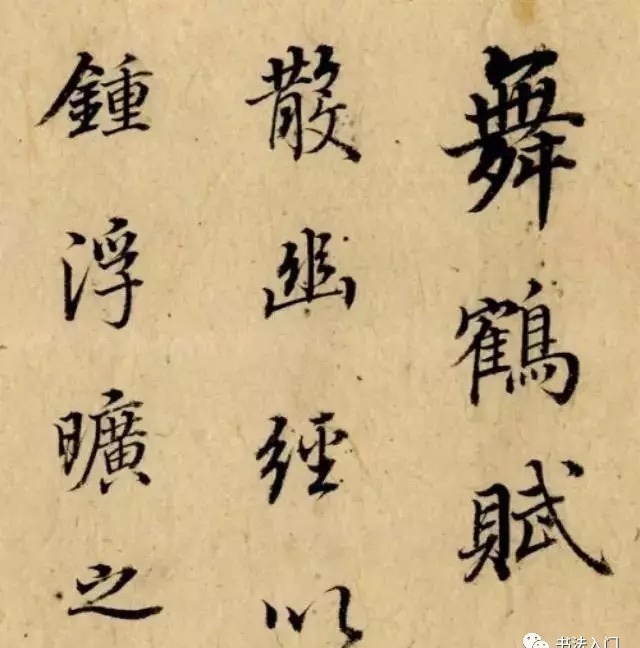 舞鶴賦
散幽經以
鍾浮曠之
书法入门